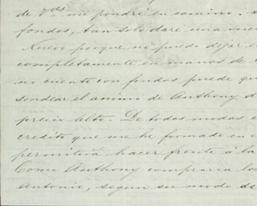 de Vds. me pondré en camino.
fondos, tan solo daré una
Nuevo porque no puedo dejar
completamente en manos de
no cuento con fondos puede que
sondear el animo de Anthony
precio alto. De todos modos
credito que me he formado en
permitirá hacer frente á la
Como Anthony compraria los
Antonio, segun su modo de